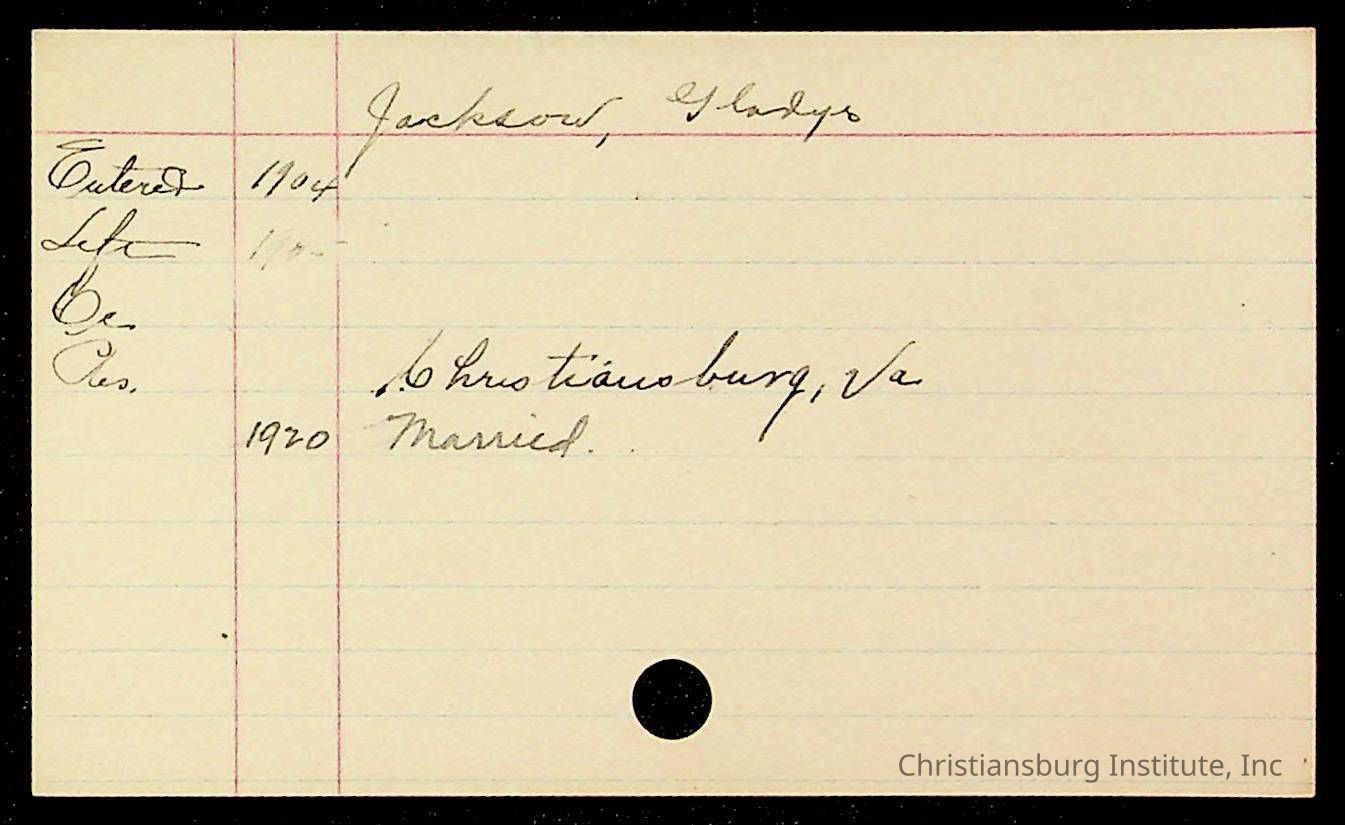 Jackson, Gladys
Entered 1904
Left
Oc.
Res. Christiansburg, Va
1920 Married.
Christiansburg Institute, Inc